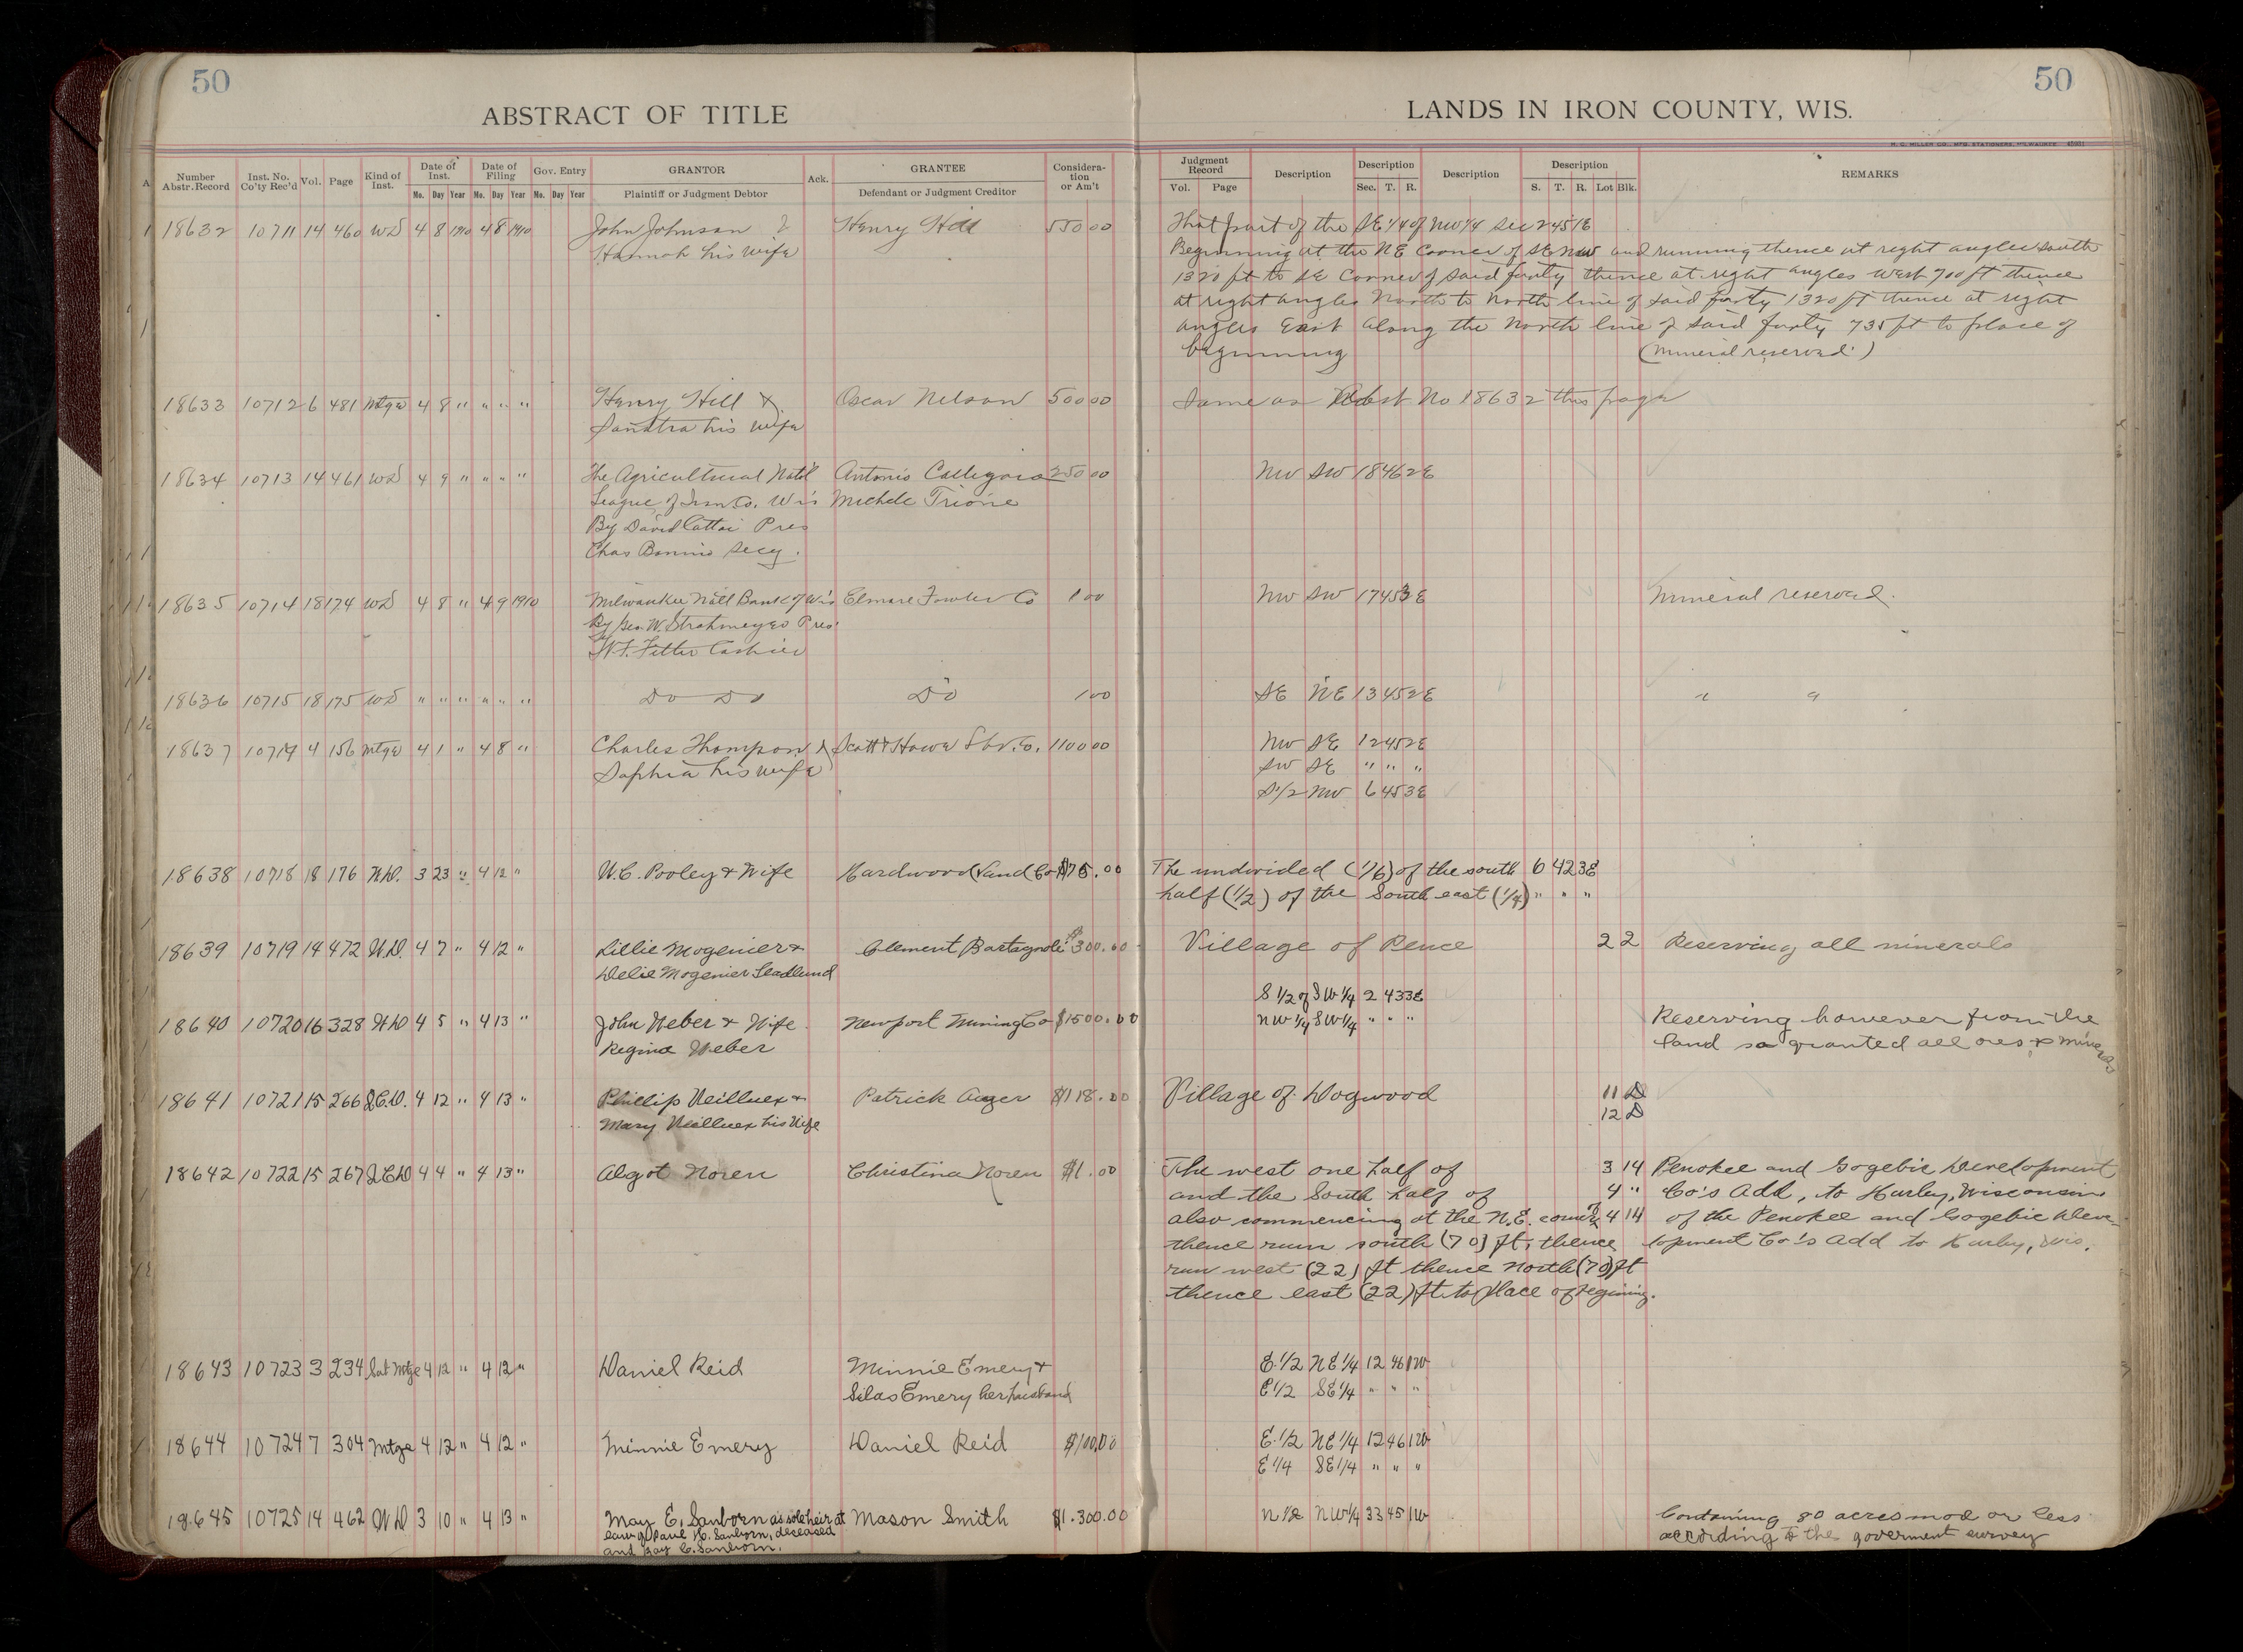 50
50
ABSTRACT OF TITLE
LANDS IN IRON COUNTY, WIS.
H. C. MILLER CO., MFG. STATIONERS, MILWAUKEE
Number Abstr. Record Inst. No. Co'ty Rec'd Vol. Page Kind of Inst. Date of Inst. Mo. Day Year Date of Filing Mo. Day Year Gov. Entry Mo. Day Year GRANTOR Plaintiff or Judgment Debtor Ack. GRANTEE Defendant or Judgment Creditor Considera-tion or Am't
Judgment Record Vol. Page Description Description Sec. T. R. Description Description S. T. R. Lot Blk. REMARKS
18632 10711 14 460 WD 4 8 1910 4 8 1910 John Johnson & Henry Hill 550 00 That part of the SE 1/4 of NW 1/4 Sec 2 45 1E
Hannah his wife Beginning at the NE Corner of SE NW and running thence at right angles South
1320 ft to SE Corner of said forty thence at right angles West 700 ft thence
at right angles North to North line of said forty 1320 ft thence at right
angles East along the North line of said forty 735 ft to place of
beginning (mineral reserved.)
18633 10712 6 481 Mtge 4 8 " " " " Henry Hill & Oscar Nelson 500 00 Same as Abst No 18632 this page
his wife
18634 10713 14 461 WD 4 9 " " " " The Agricultural Nat'l Antonio 250 00 NW SW 18 46 2E
League of Iron Co. Wis Michele Trione
By David Cattoi Pres
Chas Bonino Secy.
18635 10714 18 174 WD 4 8 " 4 9 1910 Milwaukee Nat'l Bank of Wis Elmore Fowler Co 1 00 NW SW 17 45 3E Mineral reserved.
By Geo. W. Strohmeyer Pres
W.F. Filter Cashier
18636 10715 18 175 WD " " " " " " Do Do Do 1 00 SE NE 13 45 2E " "
18637 10717 4 156 Mtge 4 1 " 4 8 " Charles Thompson & Scott & Howe Lbr. Co. 1100 00 NW SE 12 45 2E
Sophia his wife SW SE " " "
S 1/2 NW 6 45 3E
18638 10718 18 176 W.D. 3 23 " 4 12 " W.C. Pooley & Wife Hardwood Land Co $75.00 The undivided (1/6) of the south 6 42 3E
half (1/2) of the South east (1/4) " " "
18639 10719 14 472 W.D. 4 7 " 4 12 " Lillie Mogenier & Clement Bartagnoli $300.00 Village of Pence 2 2 Reserving all minerals
Delie Mogenier Leadlund
S 1/2 of SW 1/4 2 43 3E
18640 10720 16 328 WD 4 5 " 4 13 " John Weber & Wife Newport Mining Co $1500.00 NW 1/4 SW 1/4 " " " Reserving however from the
Regina Weber land so granted all ores & minerals
18641 10721 15 266 Q.C.D. 4 12 " 4 13 " Phillip Veilluex & Patrick Auger $118.00 Village of Dogwood 11 D
Mary Veilluex his Wife 12 D
18642 10722 15 267 QCD 4 4 " 4 13 " Algot Noren Christina Noren $1.00 The west one half of 3 14 Penokee and Gogebic Development
and the South half of 4 " Co's Add, to Hurley, Wisconsin
also commencing at the N.E. corner of 4 14 of the Penokee and Gogebic Deve-
thence run south (70) ft, thence lopment Co's Add to Hurley, Wis.
run west (22) ft thence North (70) ft
thence east (22) ft to place of begining.
18643 10723 3 234 Sat Mtge 4 12 " 4 12 " Daniel Reid Minnie Emery & E. 1/2 NE 1/4 12 46 1W
Silas Emery her husband E 1/2 SE 1/4 " " "
18644 10724 7 304 Mtge 4 12 " 4 12 " Minnie Emery Daniel Reid $100.00 E. 1/2 NE 1/4 12 46 1W
E 1/4 SE 1/4 " " "
18645 10725 14 462 WD 3 10 " 4 13 " May E. Sanborn as sole heir at Mason Smith $1.300.00 N 1/2 NW 1/4 33 45 1W Containing 80 acres mor or less
law of Paul H. Sanborn, deceased according to the goverment survey
and Ray C. Sanborn.